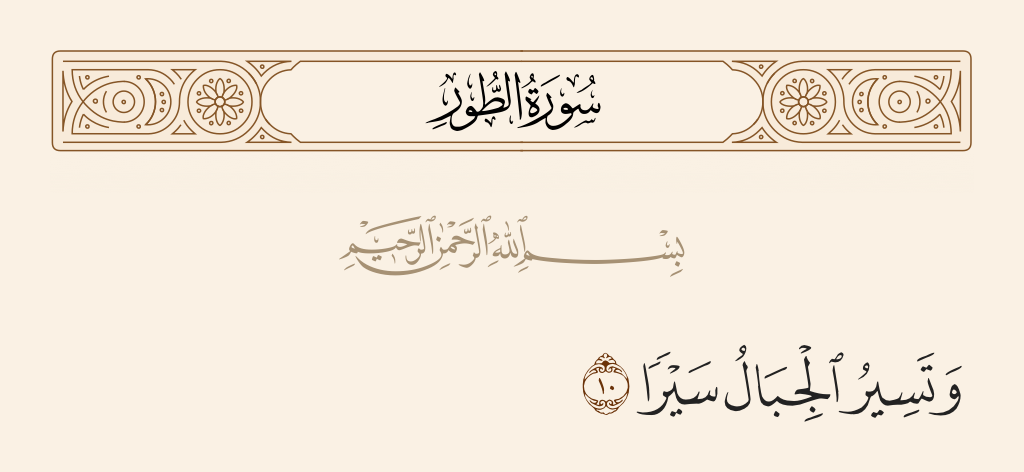 سُورَةُ الطُّورِ
بِسْمِ ٱللَّهِ ٱلرَّحْمَٰنِ ٱلرَّحِيمِ
وَتَسِيرُ ٱلْجِبَالُ سَيْرًا ١٠